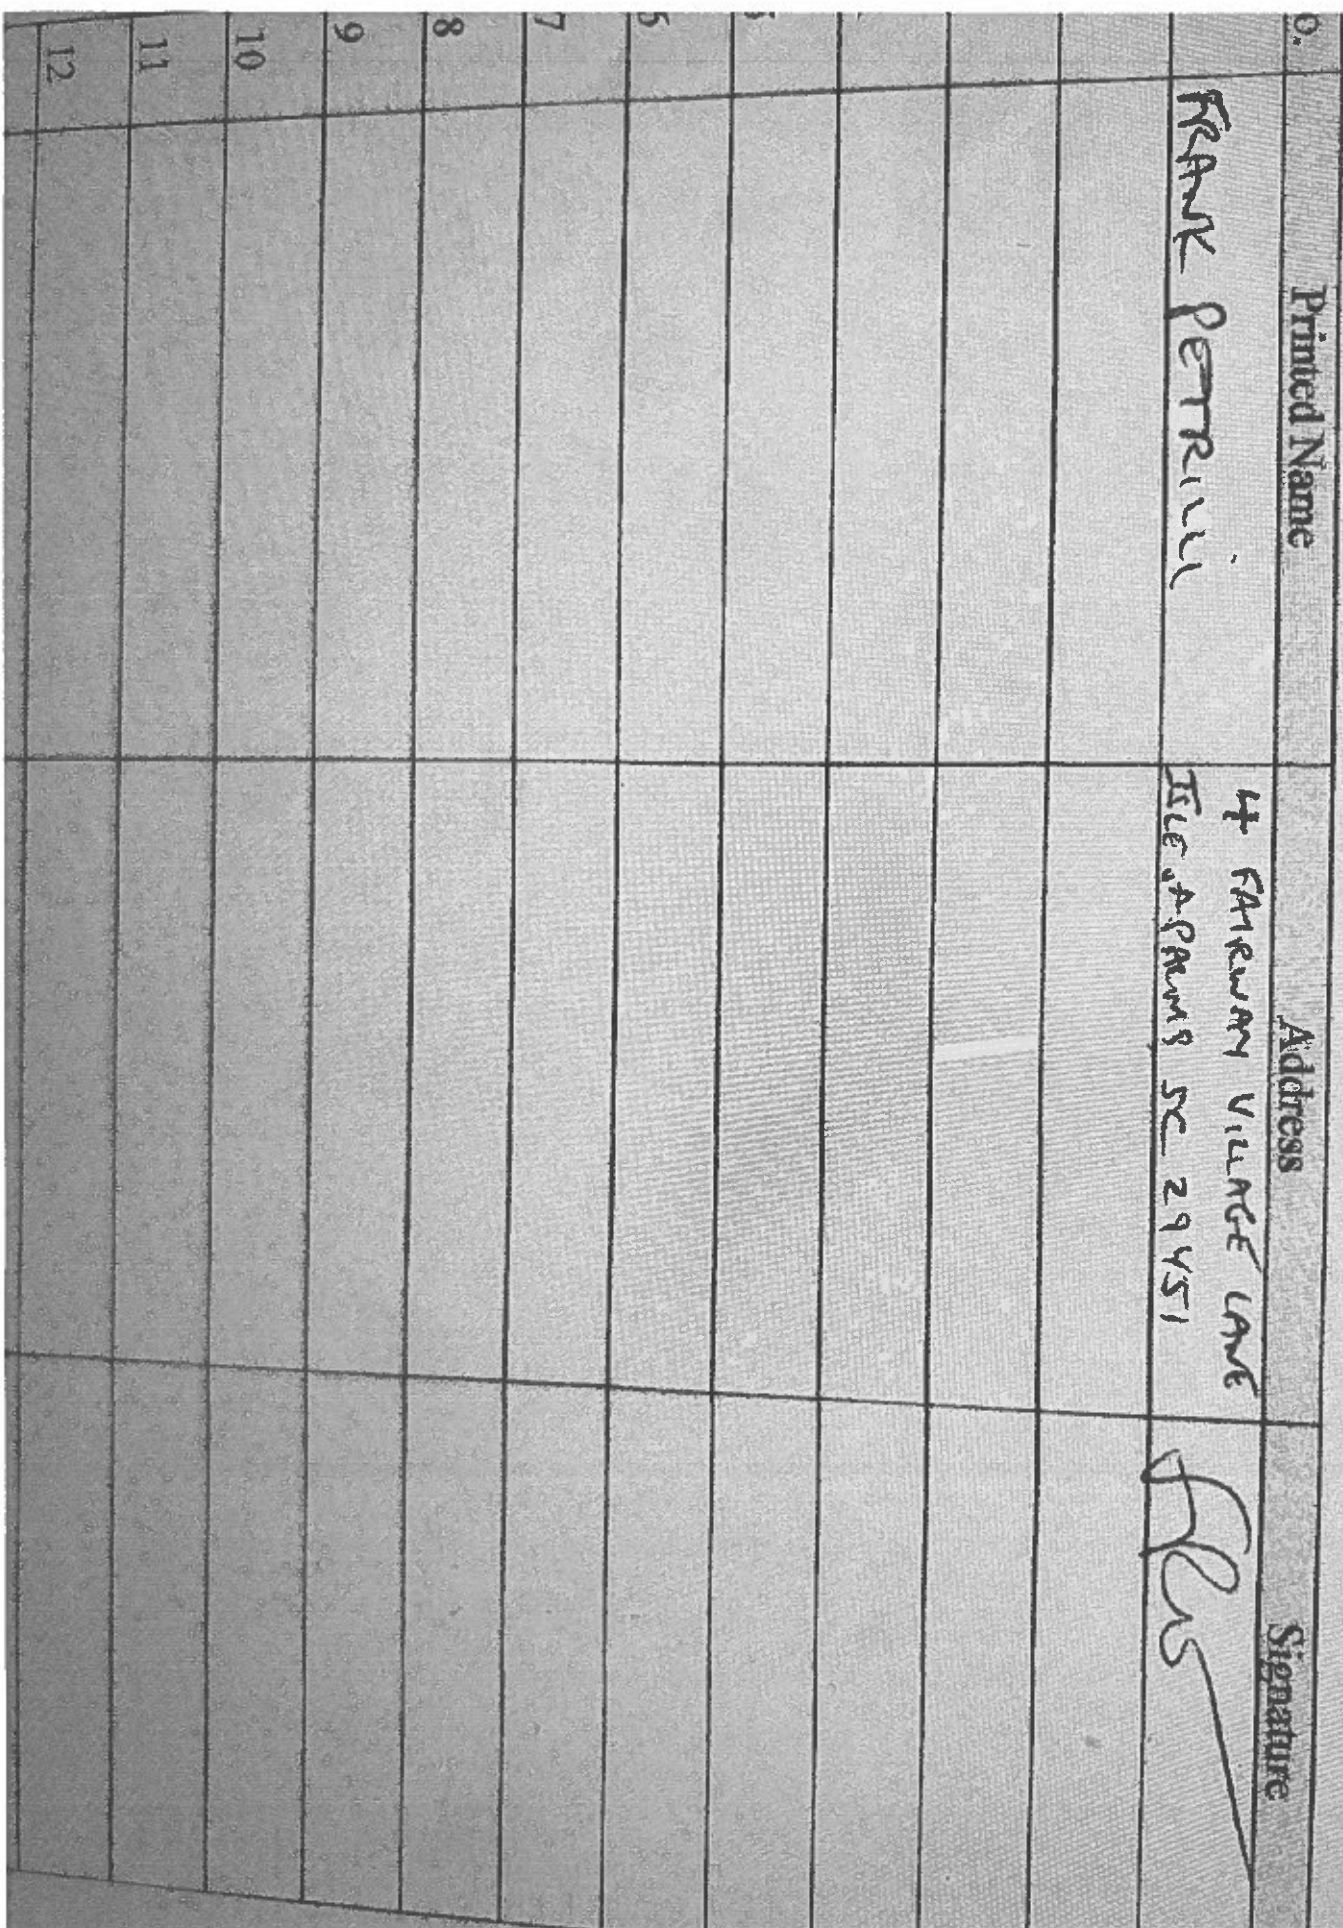 o. Printed Name Address Signature
FRANK PETRILLI 4 FAIRWAY VILLAGE LANE
ISLE of PALMS SC 29451
5
6
7
8
9
10
11
12